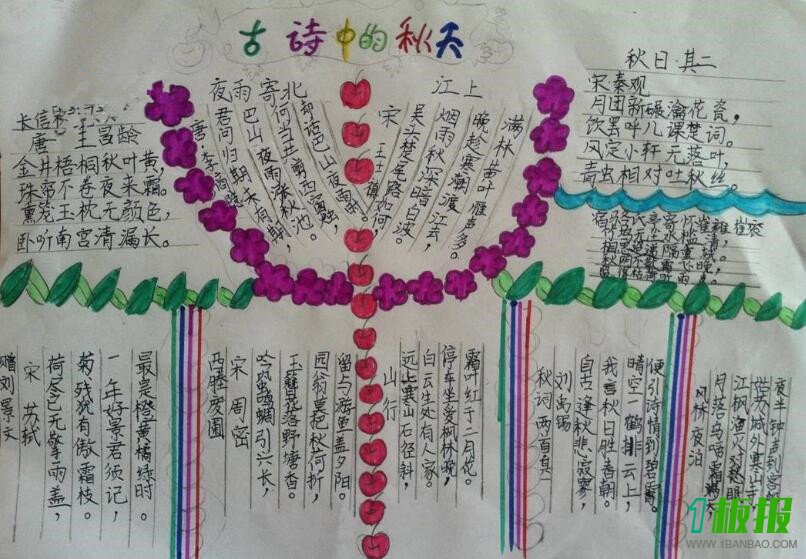 古诗中的秋天
长信秋
唐 王昌龄
金井梧桐秋叶黄，
珠帘不卷夜来霜。
熏笼玉枕无颜色，
卧听南宫清漏长。
夜雨寄北
唐·李商隐
君问归期未有期，
巴山夜雨涨秋池。
何当共剪西窗烛，
却话巴山夜雨时。
江上
宋 王士禛
吴头楚尾路如何，
烟雨秋深暗白波。
晚趁寒潮渡江去，
满林黄叶雁声多。
秋日·其二
宋秦观
月团新碾瀹花瓷，
饮罢呼儿课楚词。
风定小轩无落叶，
青虫相对吐秋丝。
赠刘景文
宋 苏轼
荷尽已无擎雨盖，
菊残犹有傲霜枝。
一年好景君须记，
最是橙黄橘绿时。
西塍废圃
宋 周密
吟蛩鸣蜩引兴长，
玉簪花落野塘香。
园翁莫把秋荷折，
留与游鱼盖夕阳。
山行
远上寒山石径斜，
白云生处有人家。
停车坐爱枫林晚，
霜叶红于二月花。
秋词
刘禹锡
自古逢秋悲寂寥，
我言秋日胜春朝。
晴空一鹤排云上，
便引诗情到碧霄。
夜泊
月落乌啼霜满天
江枫渔火对愁眠
姑苏城外寒山寺
夜半钟声到客船
1板报
WWW.1BANBAO.COM